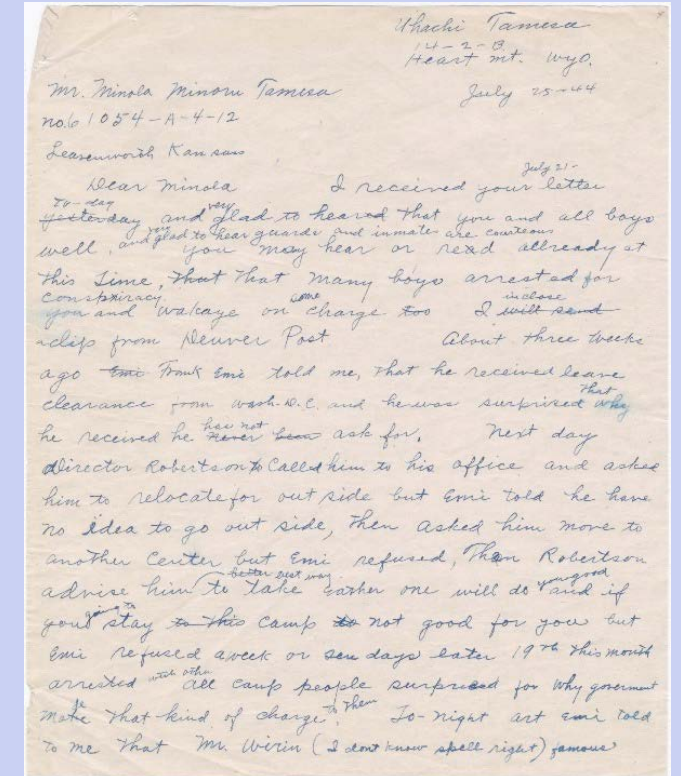 Uhachi Tamesa
14-2-B
Heart mt. Wyo.
Mr. Minola Minoru Tamesa
July 25-44
no. 61054-A-4-12
Leavenworth Kansas
July 21-
Dear Minola I received your letter
to-day very
yesterday and glad to heared that you and all boys
well, and very glad to hear guards and inmates are courteous
you may hear or read allready at
this time, that that many boys arrested for
conspiracy
you and Wakaye on same charge too I inclose will send
a clip from Denver Post About three weeks
ago Emi Frank Emi told me, that he received leave
clearance from Wash. D.C. and he was surprised that why
he received he has not never been ask for. Next day
director Robertson to called him to his office and asked
him to relocate for out side but Emi told he have
no idea to go out side, then asked him move to
another center but Emi refused, Then Robertson
advise him better best way to take eather one will do you good and if
you going to stay to this camp to not good for you but
Emi refused a week or days later 19th this month
arrested with other all camp people surprised for why goverment
make that kind of charge to them To-night art Emi told
to me that Mr. Wirin (I dont know spell right) famous